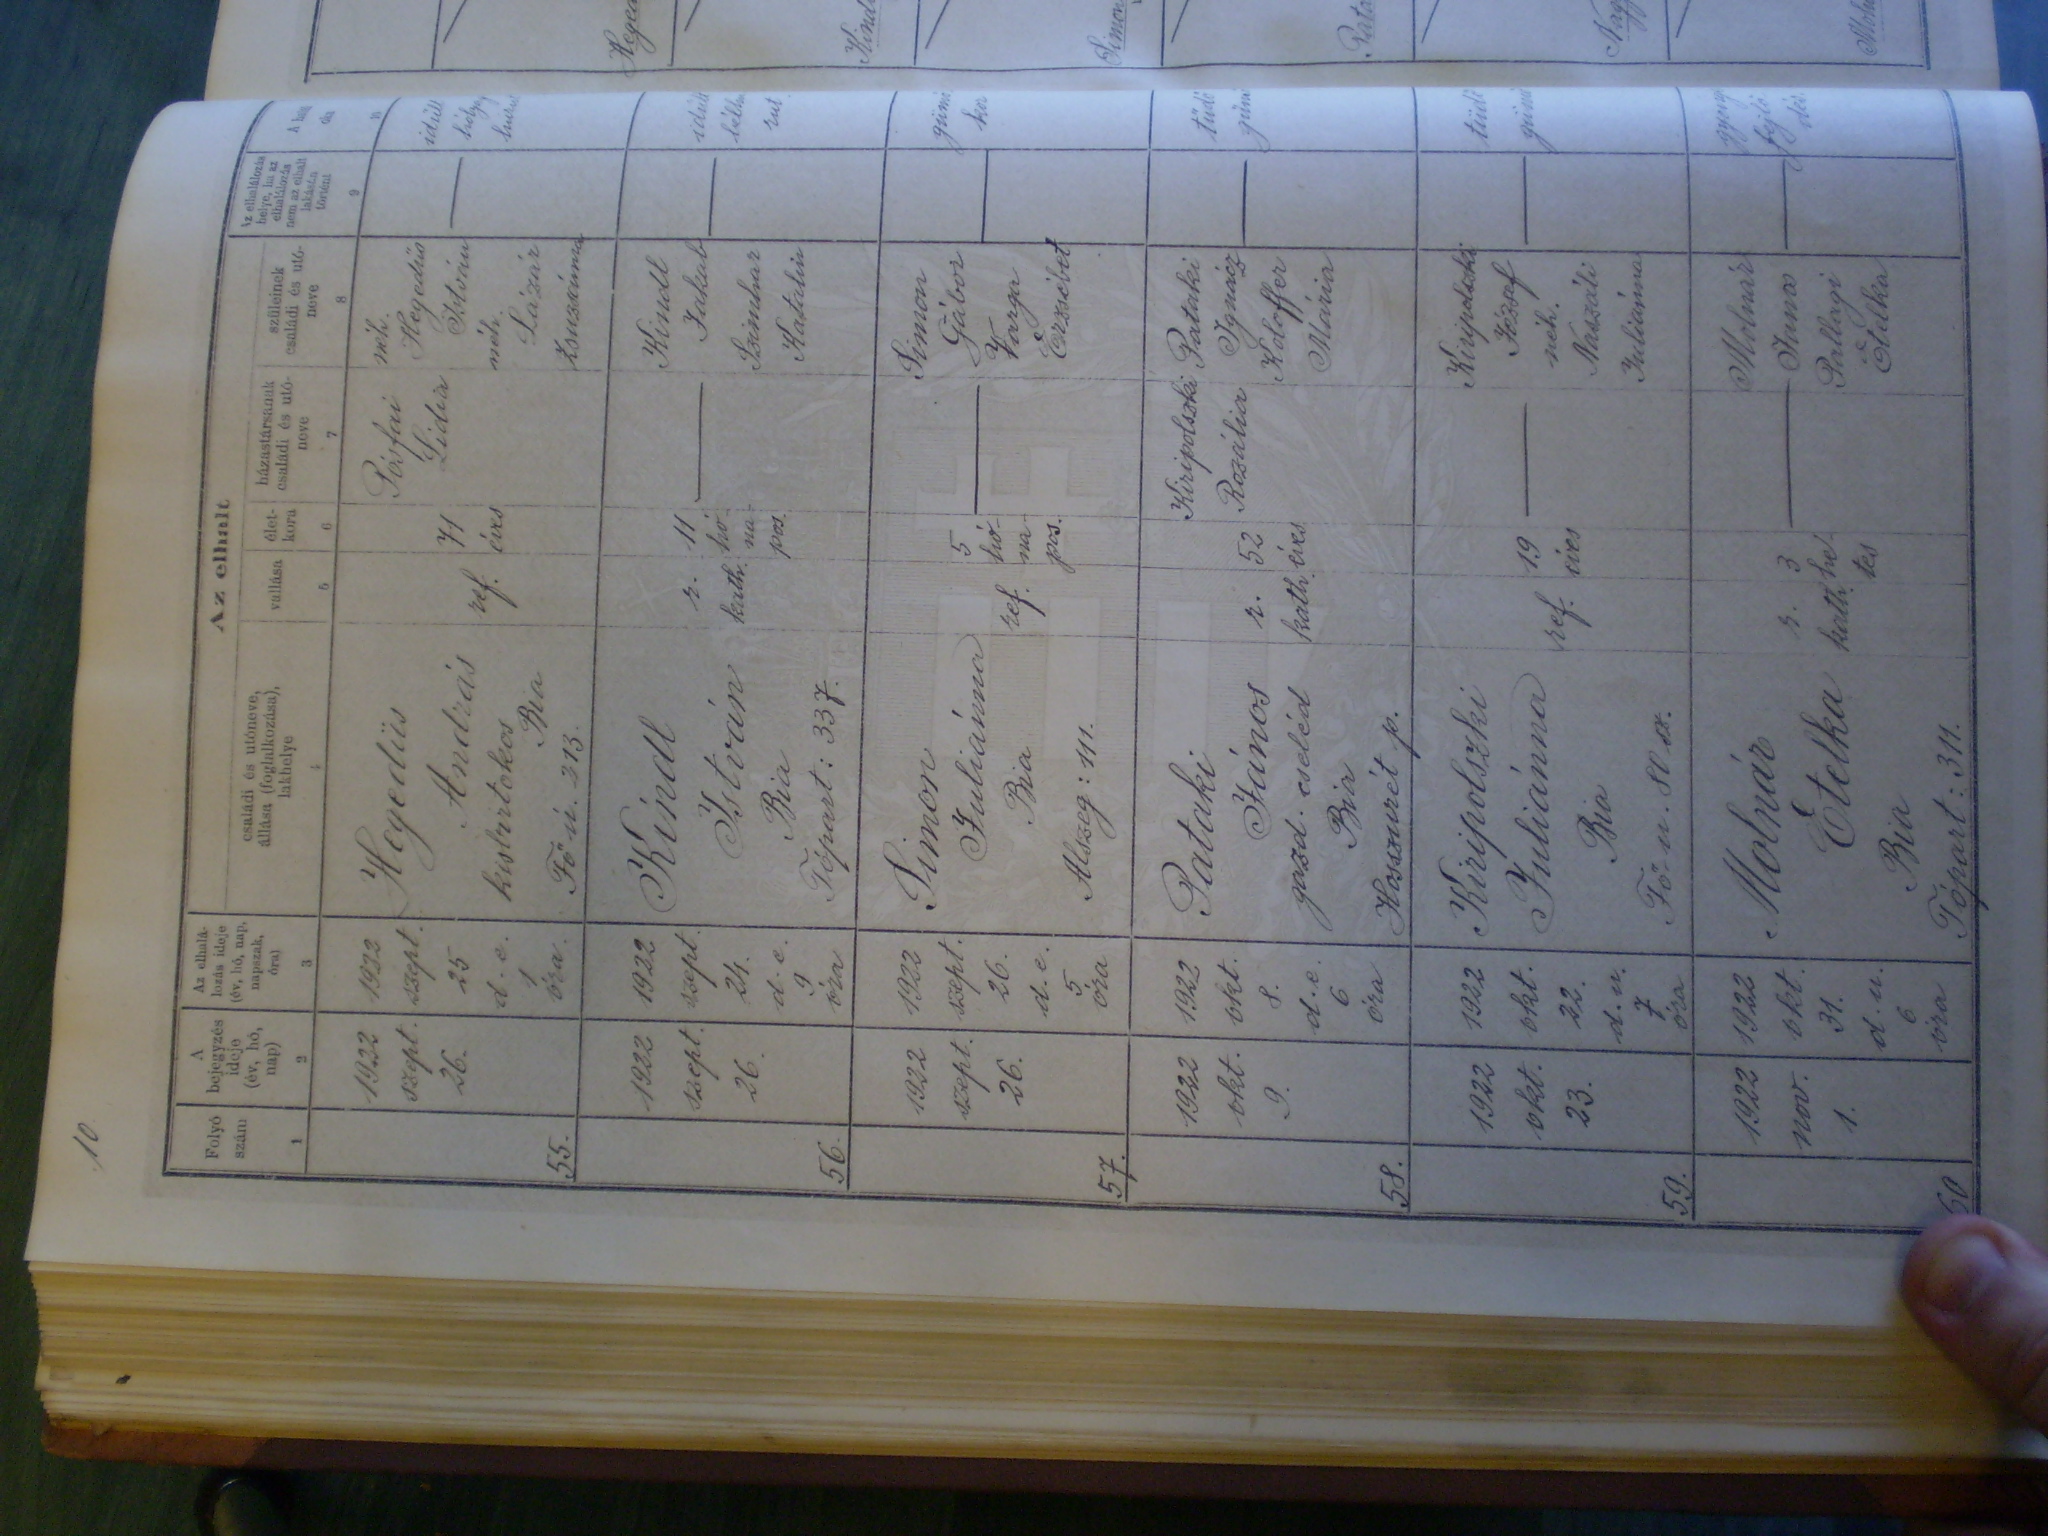 10
Az elhalt
Folyó
szám
A
bejegyzés
ideje
(év, hó,
nap)
Az elhalá-
lozás ideje
(év, hó, nap,
napszak,
óra)
családi és utóneve,
állása (foglalkozása),
lakhelye
vallása
élet-
kora
házastársának
családi és utó-
neve
szüleinek
családi és utó-
neve
Az elhalálozás
helye, ha az
elhalálozás
nem az elhalt
lakásán
történt
A hal
oka
1
2
3
4
5
6
7
8
9
55.
1922
szept.
26.
1922
szept.
25
d. e.
1
óra.
Hegedüs
András
kisbirtokos
Bia
Fő-ú. 213.
ref.
71
éves
Pósfai
Lidia
néh.
Hegedüs
István
néh.
Lázár
Zsuzsánna
idült
hólyag
hurut
56.
1922
szept.
26.
1922
szept.
24.
d. e.
9
óra
Kindl
István
Bia
Tópart: 337.
r.
kath.
11
hó-
na-
pos.
Kindl
Jakab
Katalin
idült
bélhu
rut.
57.
1922
szept.
26.
1922
szept.
26.
d. e.
5
óra
Simon
Juliánna
Bia
Alszeg: 111.
ref.
5
hó-
na-
pos.
Simon
Gábor
Varga
Erzsébet
58.
1922
okt.
9.
1922
okt.
8.
d. e.
6
óra
Pataki
János
gazd. cseléd
Bia
Hosszurét p.
r.
kath.
52
éves
Kiripolszki
Rozália
Pataki
Ignácz
Koloffer
Mária
tüdő
gümő
59.
1922
okt.
23.
1922
okt.
22.
d. u.
7
óra
Kiripolszki
Juliánna
Bia
Fő-u. 80 sz.
ref.
19
éves
Kiripolszki
József
néh.
Naszáli
Juliánna
tüdő
gümő
60
1922
nov.
1.
1922
okt.
31.
d. u.
6
óra
Molnár
Etelka
Bia
Tópart: 311.
r.
kath.
3
he-
tes
Molnár
János
Pallagi
Etelka
gyenge
fejlő
dés.
Heged
Kindl
Simon
Pata
Nagy
Moln